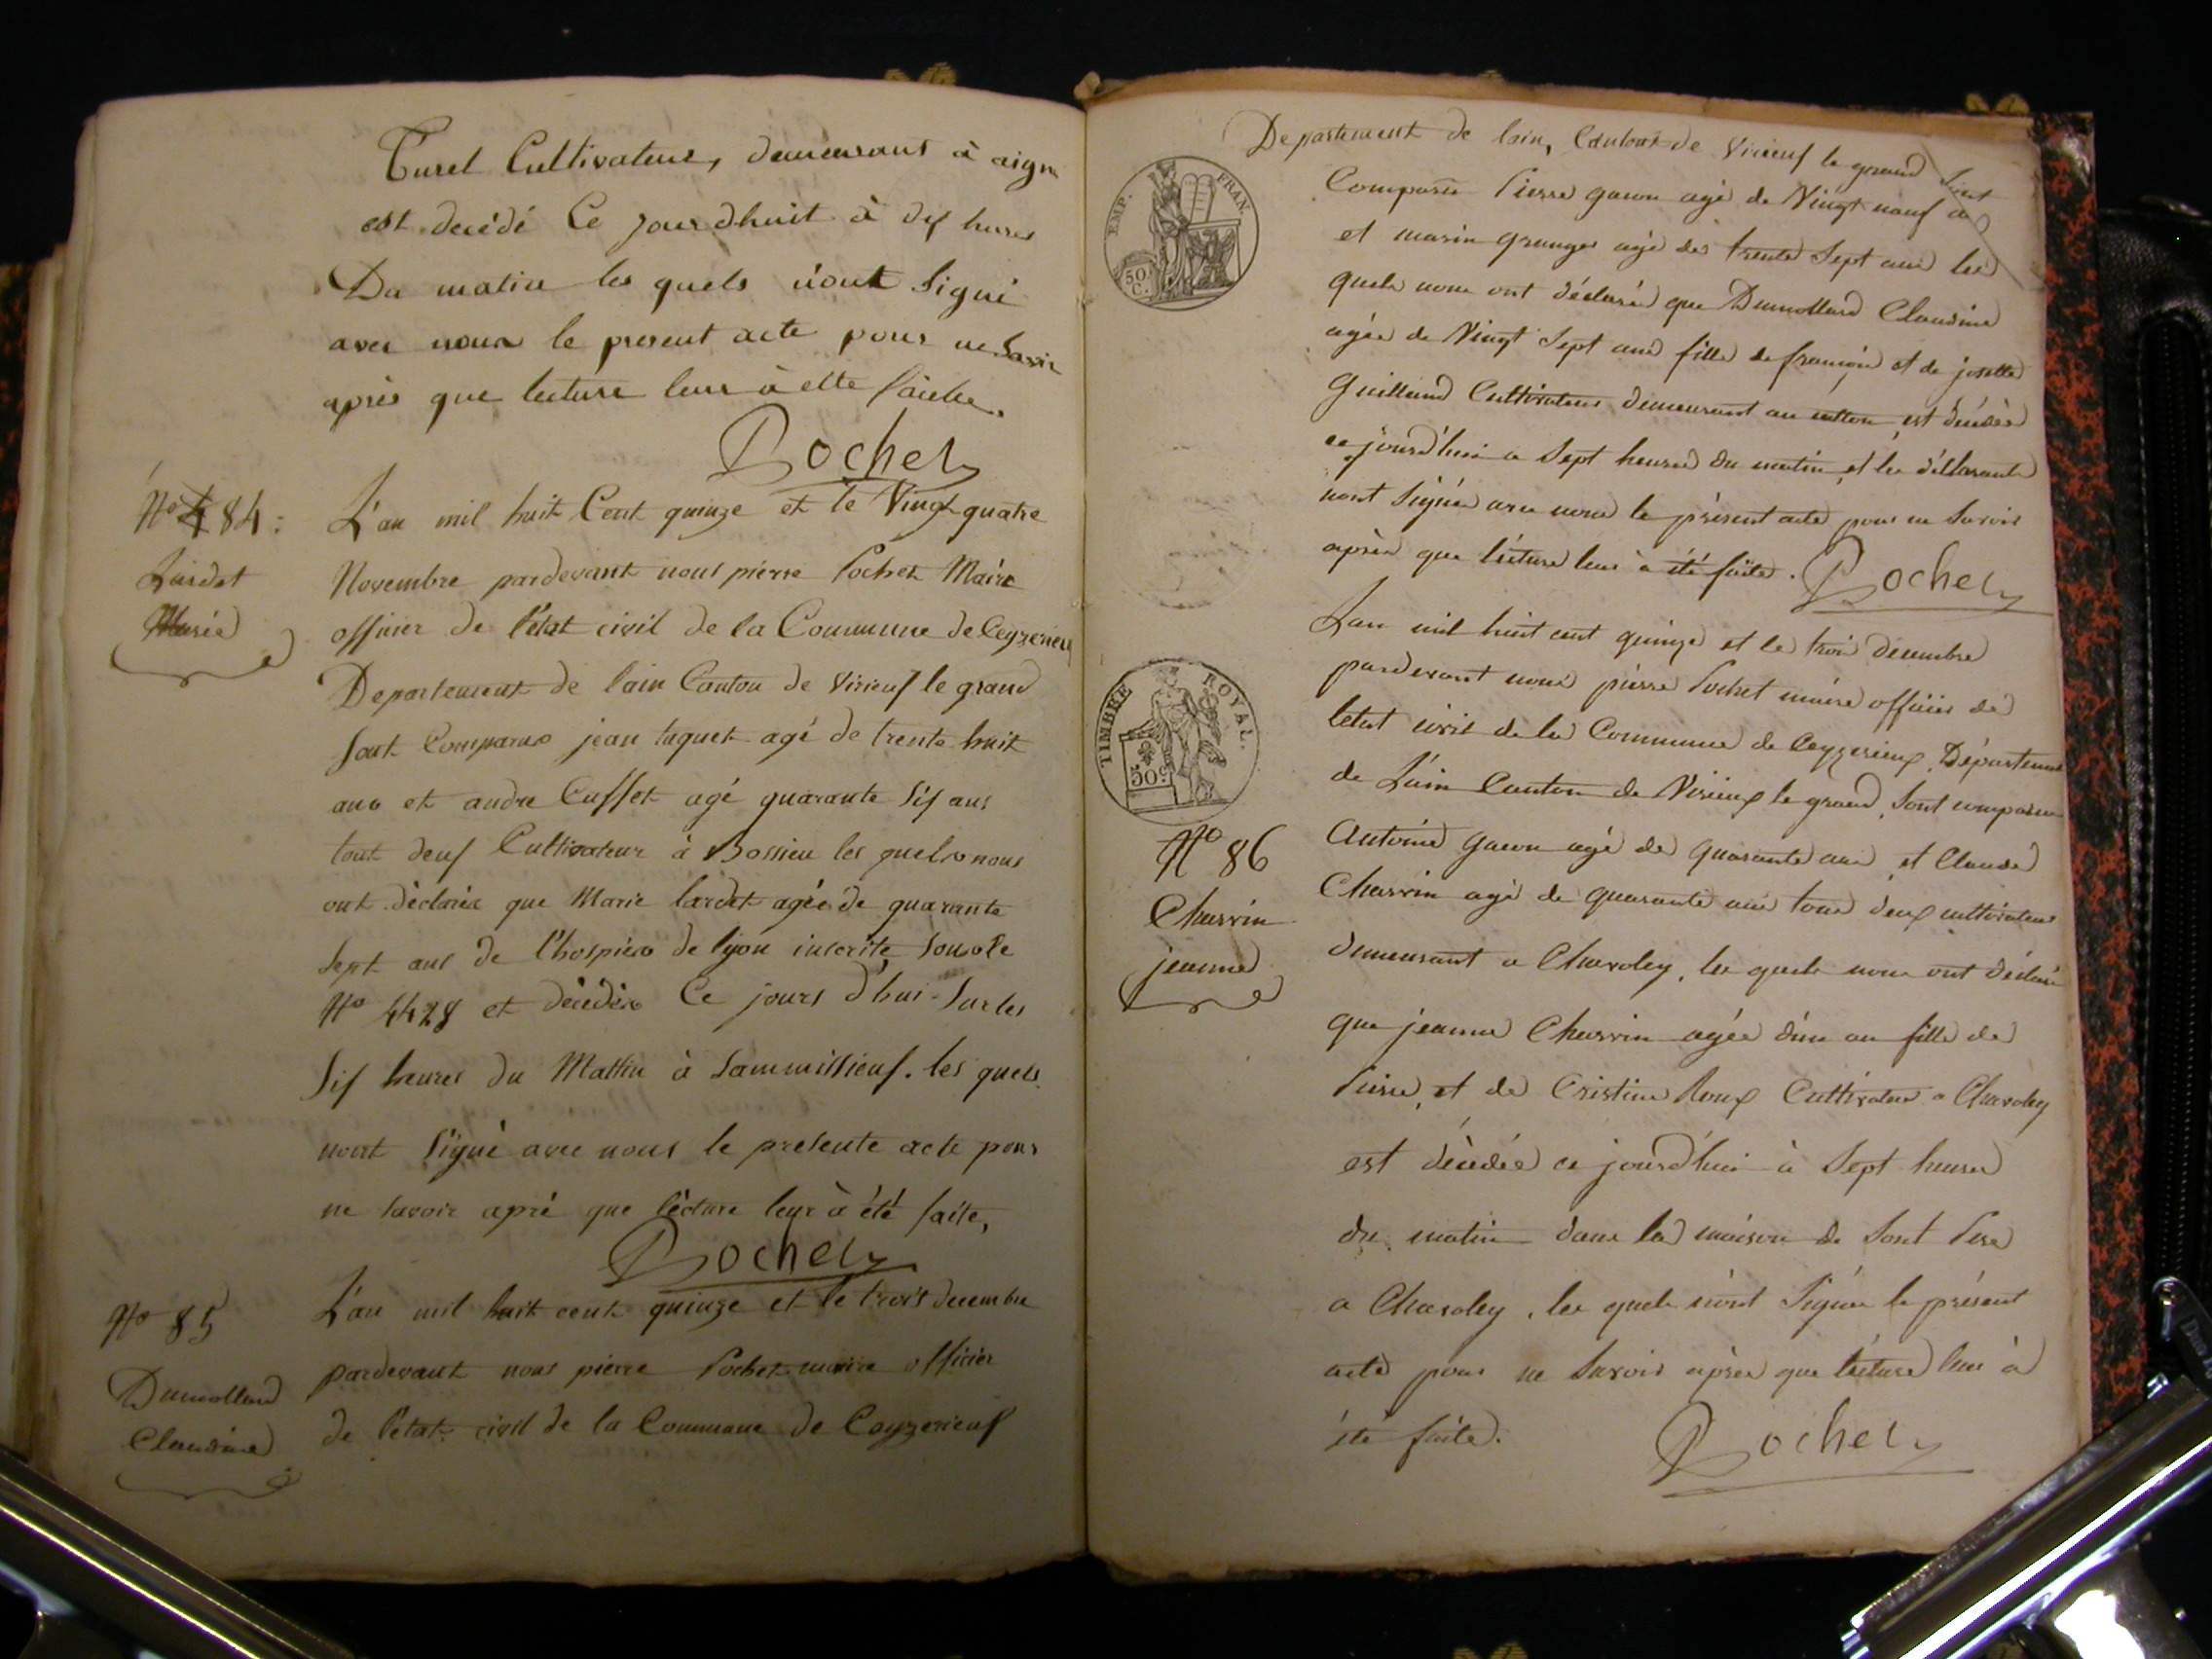 Turel Cultivateur, demeurant à aign
est décédé Ce jour dhuit à dix heures
Du matin les quels n'ont Signé
avec nous le present acte pour ne Savoir
après que lecture leur à etté faiete.
Pochet
No 84:
Lardet
Marie
L'an mil huit Cent quinze et le Vingt quatre
Novembre pardevant nous pierre Pochet Maire
officier de l'état civil de la Commune de Ceyzerieu
Departement de lain Canton de Virieux le grand
Sont Comparus jean taquet agé de trente huit
ans et andre Cusset agé quarante Six ans
tout deux Cultivateur à Bossieu les quels nous
ont déclarée que Marie lardet agée de quarante
Sept ans de l'hospice de lyon inscrite Sous le
No 4428 et décédée Ce jours d'hui Sur les
Six heures du Mattin à Sammissieux. les quels
nont Signé avec nous le presente acte pour
ne Savoir apré que lécture leur à été faite,
Pochet
No 85
Dumollard
Claudine
L'an mil huit cent quinze et le trois decembre
pardevant nous pierre Pochet maire officier
de l'état civil de la Commune de Ceyzerieux
Departement de lain, Canton de Virieux le grand Sont
EMP. FRAN.
50 C.
Comparus Pierre guron agé de Vingt neuf a
et marin granger agé de trente Sept ans les
quels nous ont déclaré que Dumollard Claudine
agée de Vingt Sept ans fille de françois et de josette
Guilland Cultivateur demeurant au est décédée
ce jourd'hui a Sept heures du matin, et les déclarants
nont Signée avec nous le présent acte pour ne Savoir
après que lécture leur à été faite.
Pochet
Lan mil huit cent quinze et le trois decembre
pardevant nous pierre Pochet maire officier de
letat civil de la Commune de Ceyzerieux, Départemen
TIMBRE ROYAL.
50 c.
de L'ain Canton de Virieux le grand, Sont comparu
No 86
Charvin
jeanne
Antoine guron agé de quarante ans et Claude
Charvin agé de quarante ans tous deux cultivateur
demeurant a Chavoley, les quels nous ont déclaré
que jeanne Charvin agée d'un an fille de
Pierre, et de Cristine Roux Cultivateur a Chavoley
est décédée ce jourd'hui à Sept heures
du matin dans la maison de Sont Pere
a Chavoley, les quels n'ont Signée le présent
acte pour ne Savoir après que lécture leur à
été faite.
Pochet